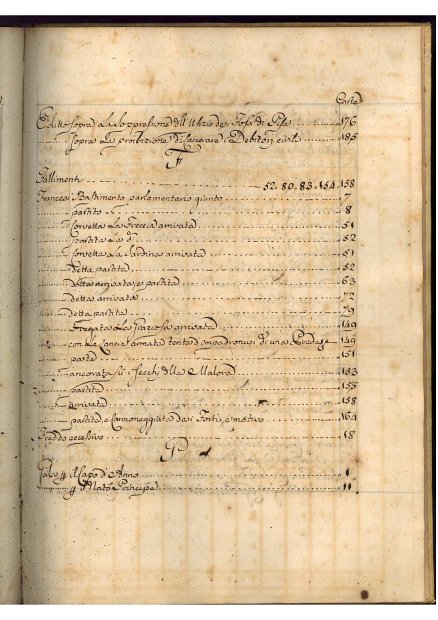 Carte
Editto sopra La Soppressione dell'Ufizio dei Fossi di Pisa 176
sopra La proibizione di carcerare i Debitori civili 185
F
Fallimenti
52. 80. 83. 154. 158
Francesi Bastimento parlamentario giunto 7
partito 8
Corvetta La Freccia arrivata 51
partita La d. 52
Corvetta La Sardina arrivata 51
Detta partita 52
Detta arrivata, e partita 63
detta arrivata 72
Detta partita 79
Fregata La arrivata 149
con Le Lancie armate tenta d'impadronirsi di una Preda 149
parte 151
ancorata Su' Secchi della Malora 153
partita 155
arrivata 158
partita, e cannoneggiata dai Forti, e motivo 164
Freddo eccessivo 18
G
Gale p il Capo d'Anno 1
p il Nato Principe 11